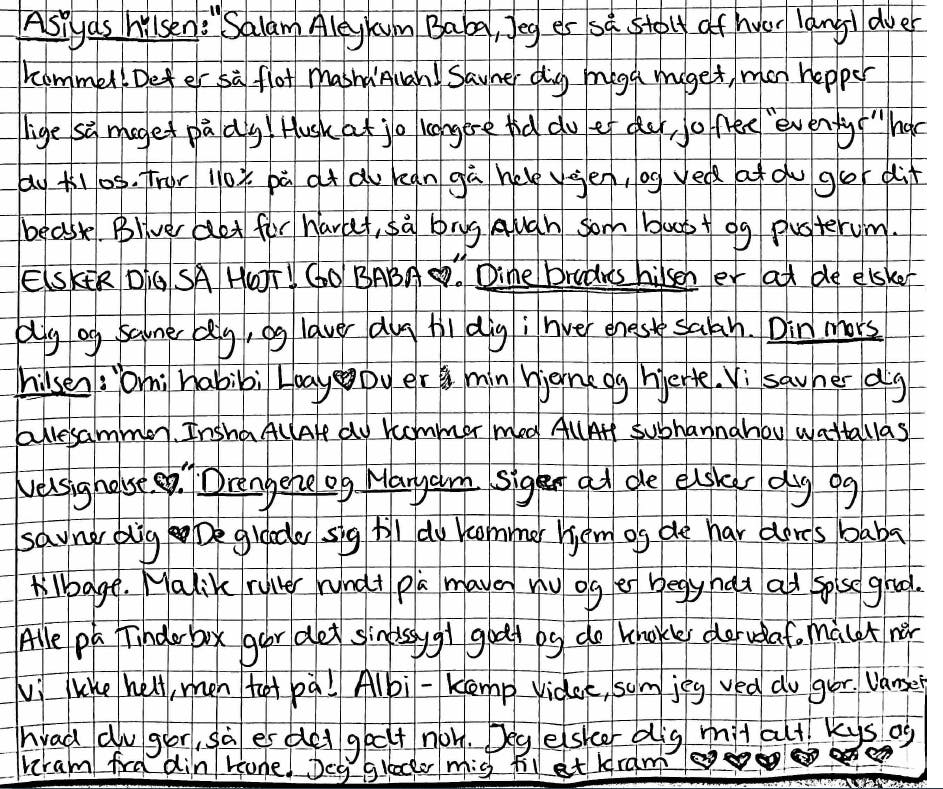 Asiyas hilsen: "Salam Aleykum Baba, Jeg er så stolt af hvor langt du er
kommet! Det er så flot Masha'Allah! Savner dig mega meget, men hepper
lige så meget på dig! Husk at jo længere tid du er der, jo flere "eventyr" har
du til os. Tror 110% på at du kan gå hele vejen, og ved at du gør dit
bedste. Bliver det for hårdt, så brug Allah som boost og pusterum.
ELSKER DIG SÅ HØJT! GO BABA ♡". Dine brødres hilsen er at de elsker
dig og savner dig, og laver dua til dig i hver eneste salah. Din mors
hilsen: "Omi habibi Loay ♡ Du er min hjerne og hjerte. Vi savner dig
allesammen. Insha ALLAH du kommer med ALLAH subhannahou wattallas
velsignelse ♡." Drengene og Maryam siger at de elsker dig og
savner dig ♡ De glæder sig til du kommer hjem og de har deres baba
tilbage. Malik ruller rundt på maven nu og er begyndt at spise grød.
Alle på Tinderbox gør det sindssygt godt og de knokler derudaf. Målet når
vi ikke helt, men tæt på! Albi - kæmp videre, som jeg ved du gør. Uanset
hvad du gør, så er det godt nok. Jeg elsker dig mit alt! Kys og
kram fra din kone. Jeg glæder mig til et kram ♡ ♡ ♡ ♡ ♡ ♡